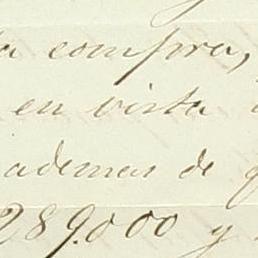 compra,
en vista
ademas de
289.000 y